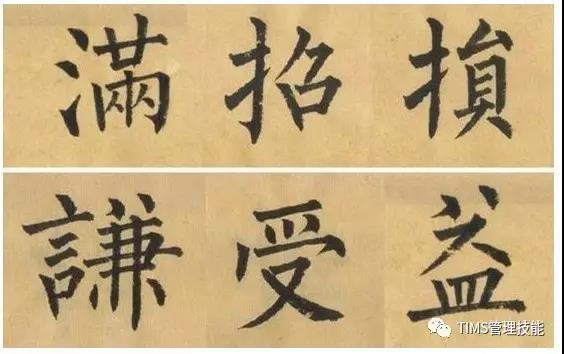 滿招損
謙受益
TIMS管理技能